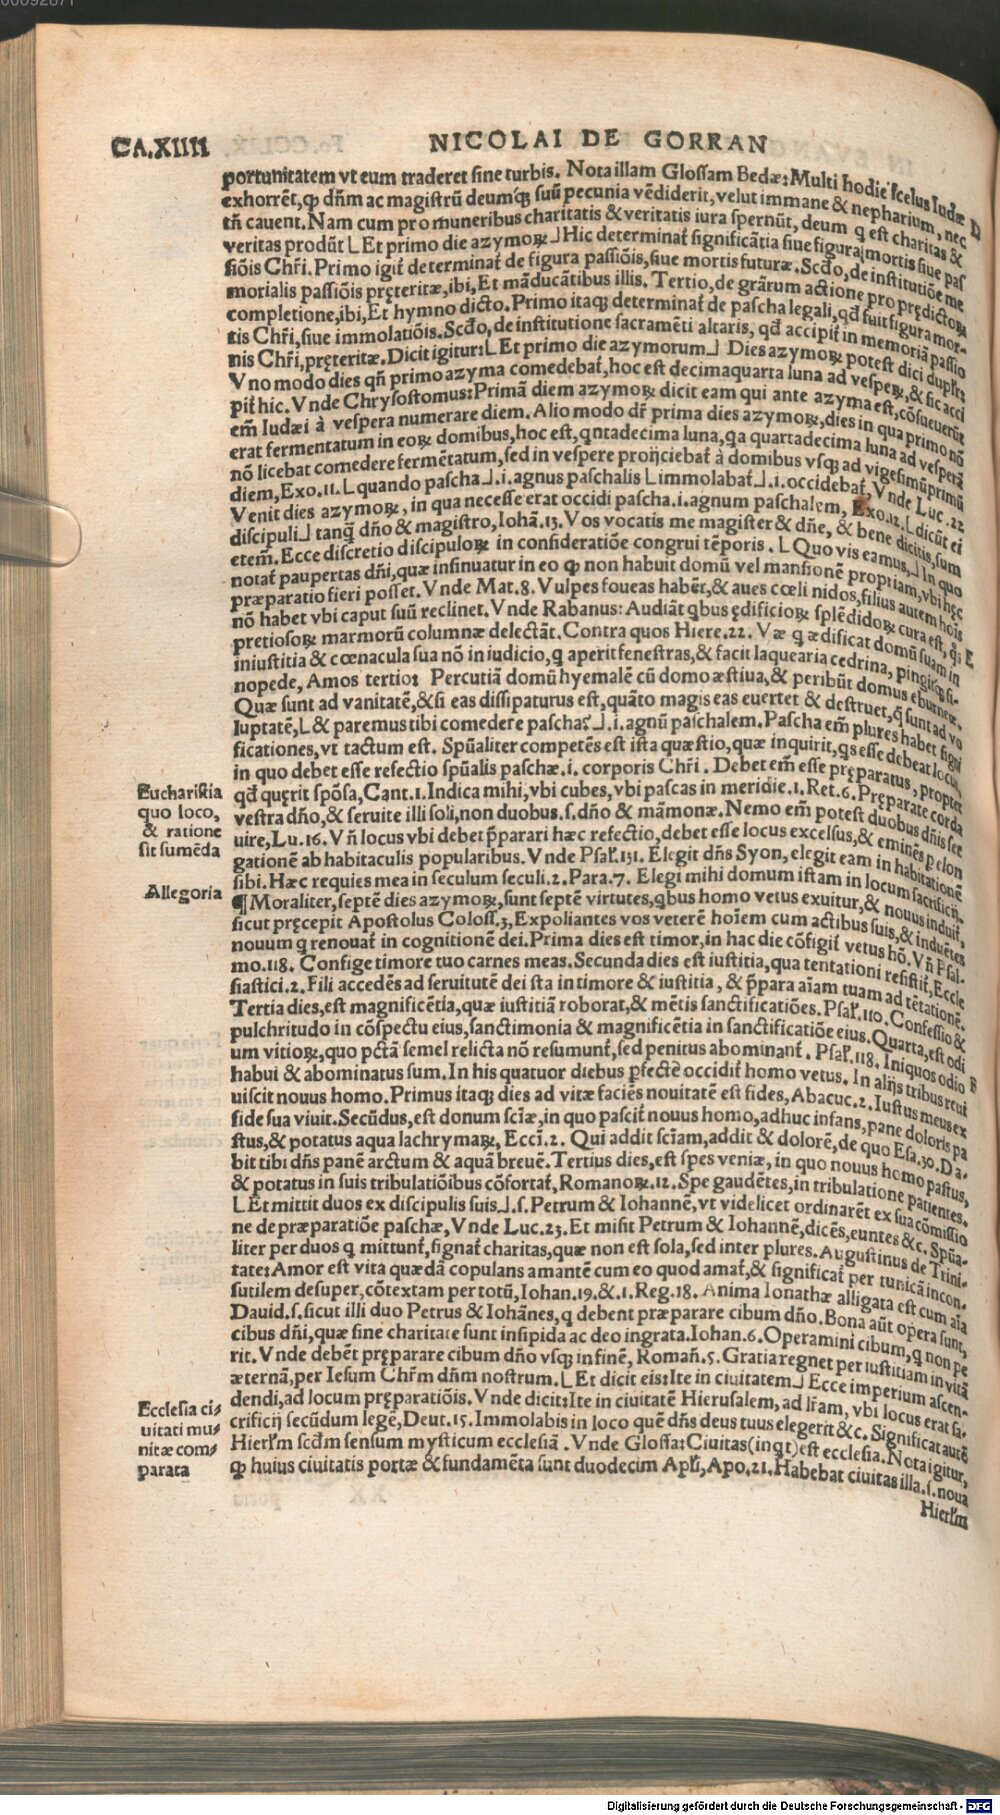 CA.XIIII
NICOLAI DE GORRAN
portunitatem vt eum traderet sine turbis. Nota illam Glossam Bedæ: Multi hodie scelus Iudæ D
exhorrēt, ꝙ dn̄m ac magistrū deumq́ꝫ suū pecunia vēdiderit, velut immane & nepharium, nec
tn̄ cauent. Nam cum pro muneribus charitatis & veritatis iura spernūt, deum q est charitas &
veritas produt̄ ⌊Et primo die azymoꝝ⌋ Hic determinat̄ significātia siue figura mortis siue pas
siōis Chr̄i. Primo igit̄ determinat̄ de figura passiōis, siue mortis futuræ. Scd̄o, de institutiōe me
morialis passiōis pręteritæ, ibi, Et māducātibus illis. Tertio, de grārum actione pro prędictoꝝ
completione, ibi, Et hymno dicto. Primo itaqꝫ determinat̄ de pascha legali, qd̄ fuit figura mor-
tis Chr̄i, siue immolatiōis. Scd̄o, de institutione sacramēti altaris, qd̄ accipit̄ in memoriā passio
nis Chr̄i, pręteritæ. Dicit igitur: ⌊Et primo die azymorum⌋ Dies azymoꝝ potest dici dupl̄r:
Vno modo dies qn̄ primo azyma comedebat̄, hoc est decimaquarta luna ad vesperā, & sic acci
pit̄ hic. Vnde Chrysostomus: Primā diem azymoꝝ dicit eam qui ante azyma est, cōsueuerūt
em̄ Iudæi à vespera numerare diem. Alio modo dr̄ prima dies azymoꝝ, dies in qua primo nō
erat fermentatum in eoꝝ domibus, hoc est, qntadecima luna, qa quartadecima luna ad vesperā
nō licebat comedere fermētatum, sed in vespere proijciebat̄ à domibus vsqꝫ ad vigesimūprimū
diem, Exo. 11. ⌊quando pascha⌋ .i. agnus paschalis ⌊immolabat̄⌋ .i. occidebat̄, Vnde Luc. 22
Venit dies azymoꝝ, in qua necesse erat occidi pascha .i. agnum paschalem, Exo. 12. ⌊dicūt ei
discipuli⌋ tanq̄ dn̄o & magistro, Iohā. 13. Vos vocatis me magister & dn̄e, & bene dicitis, sum
etem̄. Ecce discretio discipuloꝝ in consideratiōe congrui tēporis. ⌊Quo vis eamus,⌋ In quo
notat̄ paupertas dn̄i, quæ insinuatur in eo ꝙ non habuit domū vel mansionē propriam, vbi hęc
præparatio fieri posset. Vnde Mat. 8. Vulpes foueas habēt, & aues cœli nidos, filius autem hoīs
nō habet vbi caput suū reclinet. Vnde Rabanus: Audiāt qbus ędificioꝝ splēdidoꝝ cura est, qs E
pretiosoꝝ marmorū columnæ delectāt. Contra quos Hiere. 22. Væ q ædificat domū suam in
iniustitia & cœnacula sua nō in iudicio, q aperit fenestras, & facit laquearia cedrina, pingitqꝫ si-
nopede, Amos tertio: Percutiā domū hyemalē cū domo æstiua, & peribūt domus eburneæ.
Quæ sunt ad vanitatē, & si eas dissipaturus est, quāto magis eas euertet & destruet, q̄ sunt ad vo
luptatē, ⌊& paremus tibi comedere pascha?⌋ .i. agnū paschalem. Pascha em̄ plures habet signi
ficationes, vt tactum est. Spūaliter competēs est ista quæstio, quæ inquirit, qs esse debeat locus,
in quo debet esse refectio spūalis paschæ .i. corporis Chr̄i. Debet em̄ esse pręparatus, propter
qd̄ quęrit spōsa, Cant. 1. Indica mihi, vbi cubes, vbi pascas in meridie. 1. Ret. 6. Pręparate corda
vestra dn̄o, & seruite illi soli, non duobus .s. dn̄o & māmonæ. Nemo em̄ potest duobus dn̄is ser
uire, Lu. 16. Vn̄ locus vbi debet p̄parari hæc refectio, debet esse locus excelsus, & eminēs p elon
gationē ab habitaculis popularibus. Vnde Psal̄. 131. Elegit dn̄s Syon, elegit eam in habitationē
sibi. Hæc requies mea in seculum seculi. 2. Para. 7. Elegi mihi domum istam in locum sacrificij.
¶ Moraliter, septē dies azymoꝝ, sunt septē virtutes, qbus homo vetus exuitur, & nouus induit̄,
sicut pręcepit Apostolus Coloss. 3, Expoliantes vos veterē hoīem cum actibus suis, & induētes
nouum q renouat̄ in cognitionē dei. Prima dies est timor, in hac die cōfigit̄ vetus hō. Vn̄ Psal-
mo. 118. Confige timore tuo carnes meas. Secunda dies est iustitia, qua tentationi resistit̄, Eccle
siastici. 2. Fili accedēs ad seruitutē dei sta in timore & iustitia, & p̄para aīam tuam ad tētationē.
Tertia dies, est magnificētia, quæ iustitiā roborat, & mētis sanctificatiōes. Psal̄. 110. Confessio &
pulchritudo in cōspectu eius, sanctimonia & magnificētia in sanctificatiōe eius. Quarta, est odi
um vitioꝝ, quo pctā semel relicta nō resumunt̄, sed penitus abominant̄. Psal̄. 118. Iniquos odio F
habui & abominatus sum. In his quatuor diebus pfectè occidit̄ homo vetus. In alijs tribus reui
uiscit nouus homo. Primus itaqꝫ dies ad vitæ faciēs nouitatē est fides, Abacuc. 2. Iustus meus ex
fide sua viuit. Secūdus, est donum sciæ, in quo pascit̄ nouus homo, adhuc infans, pane doloris pa
stus, & potatus aqua lachrymaꝝ, Eccī. 2. Qui addit sciam, addit & dolorē, de quo Esa. 30. Da-
bit tibi dn̄s panē arctum & aquā breuē. Tertius dies, est spes veniæ, in quo nouus homo pastus,
& potatus in suis tribulatiōibus cōfortat̄, Romanoꝝ. 12. Spe gaudētes, in tribulatione patientes.
⌊Et mittit duos ex discipulis suis⌋ .s. Petrum & Iohannē, vt videlicet ordinarēt ex sua cōmissio
ne de præparatiōe paschæ, Vnde Luc. 23. Et misit Petrum & Iohannē, dicēs, euntes &c. Spūa-
liter per duos q mittunt̄, signat̄ charitas, quæ non est sola, sed inter plures. Augustinus de Trini-
tate: Amor est vita quædā copulans amantē cum eo quod amat̄, & significat̄ per tunicā incon-
sutilem desuper, cōtextam per totū, Iohan. 19. & .1. Reg. 18. Anima Ionathæ alligata est cum aīa
Dauid .s. sicut illi duo Petrus & Iohānes, q debent præparare cibum dn̄o. Bona aūt opera sunt,
cibus dn̄i, quæ sine charitate sunt insipida ac deo ingrata. Iohan. 6. Operamini cibum, q non pe
rit. Vnde debēt pręparare cibum dn̄o vsqꝫ in finē, Roman̄. 5. Gratia regnet per iustitiam in vitā
æternā, per Iesum Chr̄m dn̄m nostrum. ⌊Et dicit eis: Ite in ciuitatem⌋ Ecce imperium ascen-
dendi, ad locum pręparatiōis. Vnde dicit: Ite in ciuitatē Hierusalem, ad lr̄am, vbi locus erat sa-
crificij secūdum legē, Deut. 15. Immolabis in loco quē dn̄s deus tuus elegerit &c. Significat autē
Hierl̄m scd̄m sensum mysticum ecclesiā. Vnde Glossa: Ciuitas (inqt) est ecclesia. Nota igitur,
ꝙ huius ciuitatis portæ & fundamēta sunt duodecim Apl̄i, Apo. 21. Habebat ciuitas illa .s. noua
Hierl̄m
Eucharistia
quo loco,
& ratione
sit sumēda
Allegoria
Ecclesia ci-
uitati mu-
nitæ com-
parata
Digitalisierung gefördert durch die Deutsche Forschungsgemeinschaft - DFG